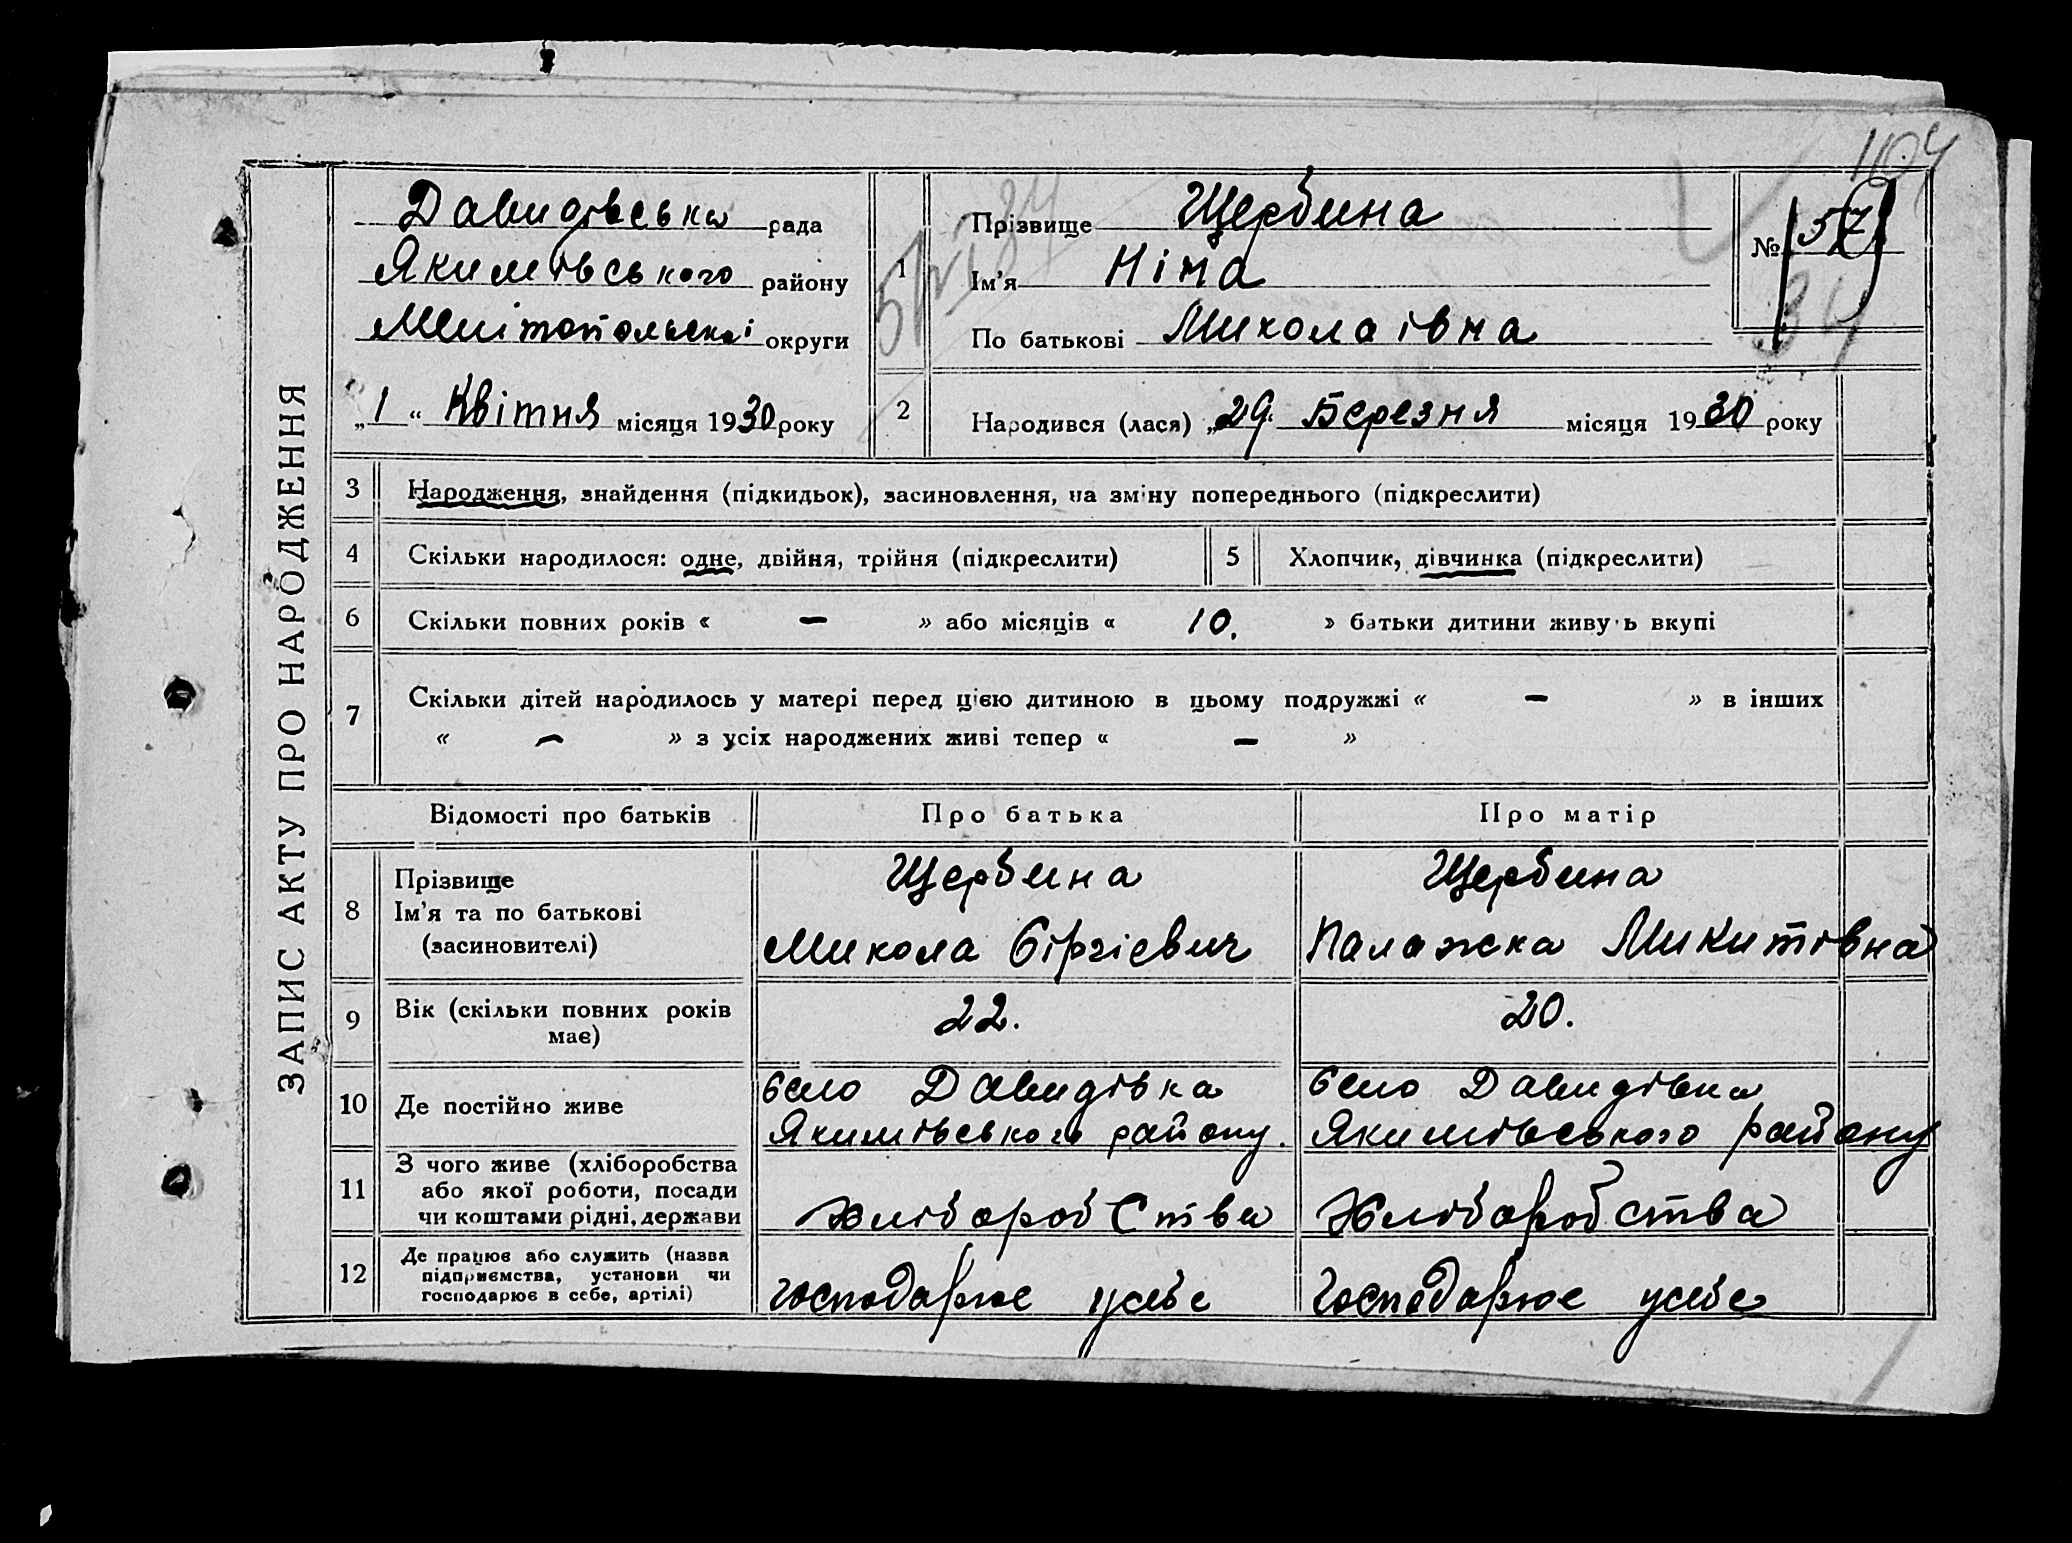 1104
ЗАПИС АКТУ ПРО НАРОДЖЕННЯ
Давидівська рада
Якимівського району
Мелітопольської округи
„1“ Квітня місяця 1930 року
1
Прізвище Щербина
Ім'я Ніна
По батькові Миколаівна
№ 57
34
2
Народився (лася) „29“ Березня місяця 1930 року
3 Народження, знайдення (підкидьок), засиновлення, на зміну попереднього (підкреслити)
4 Скільки народилося: одне, двійня, трійня (підкреслити) 5 Хлопчик, дівчинка (підкреслити)
6 Скільки повних років « — » або місяців « 10. » батьки дитини живуть вкупі
7 Скільки дітей народилось у матері перед цією дитиною в цьому подружжі « — » в інших
« — » з усіх народжених живі тепер « — »
Відомості про батьків Про батька Про матір
8 Прізвище Щербина Щербина
Ім'я та по батькові
(засиновителі) Микола Сіргієвич Палажка Микитівна
9 Вік (скільки повних років
має) 22. 20.
10 Де постійно живе село Давидівка село Давидівка
Якимівського району. Якимівського району
11 З чого живе (хліборобства
або якої роботи, посади
чи коштами рідні, держави хліборобства Хліборобства
12 Де працює або служить (назва
підприємства, установи чи
господарює в себе, артілі) господарює усебе Господарює усебе